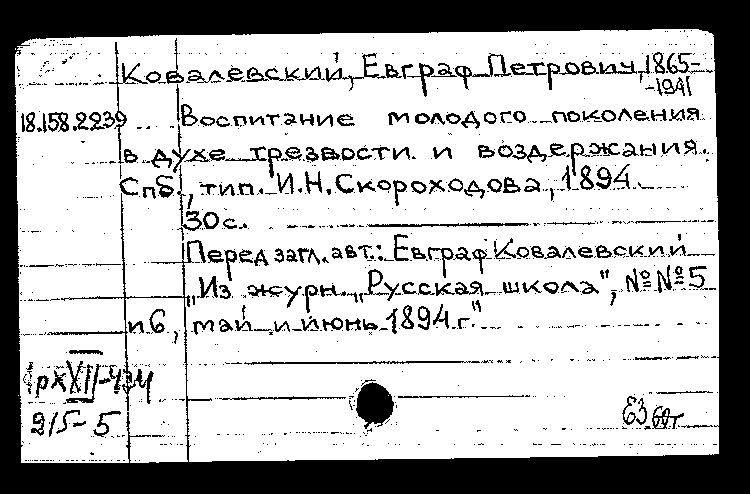 Ковалевский, Евграф Петрович, 1865-
-1941
18.158.2.239 Воспитание молодого поколения
в духе трезвости и воздержания.
Спб., тип. И.Н. Скороходова, 1894.
30 с.
Перед загл. авт.: Евграф Ковалевский
"Из журн. „Русская школа", №№ 5
и 6, май и июнь 1894 г."
215-5